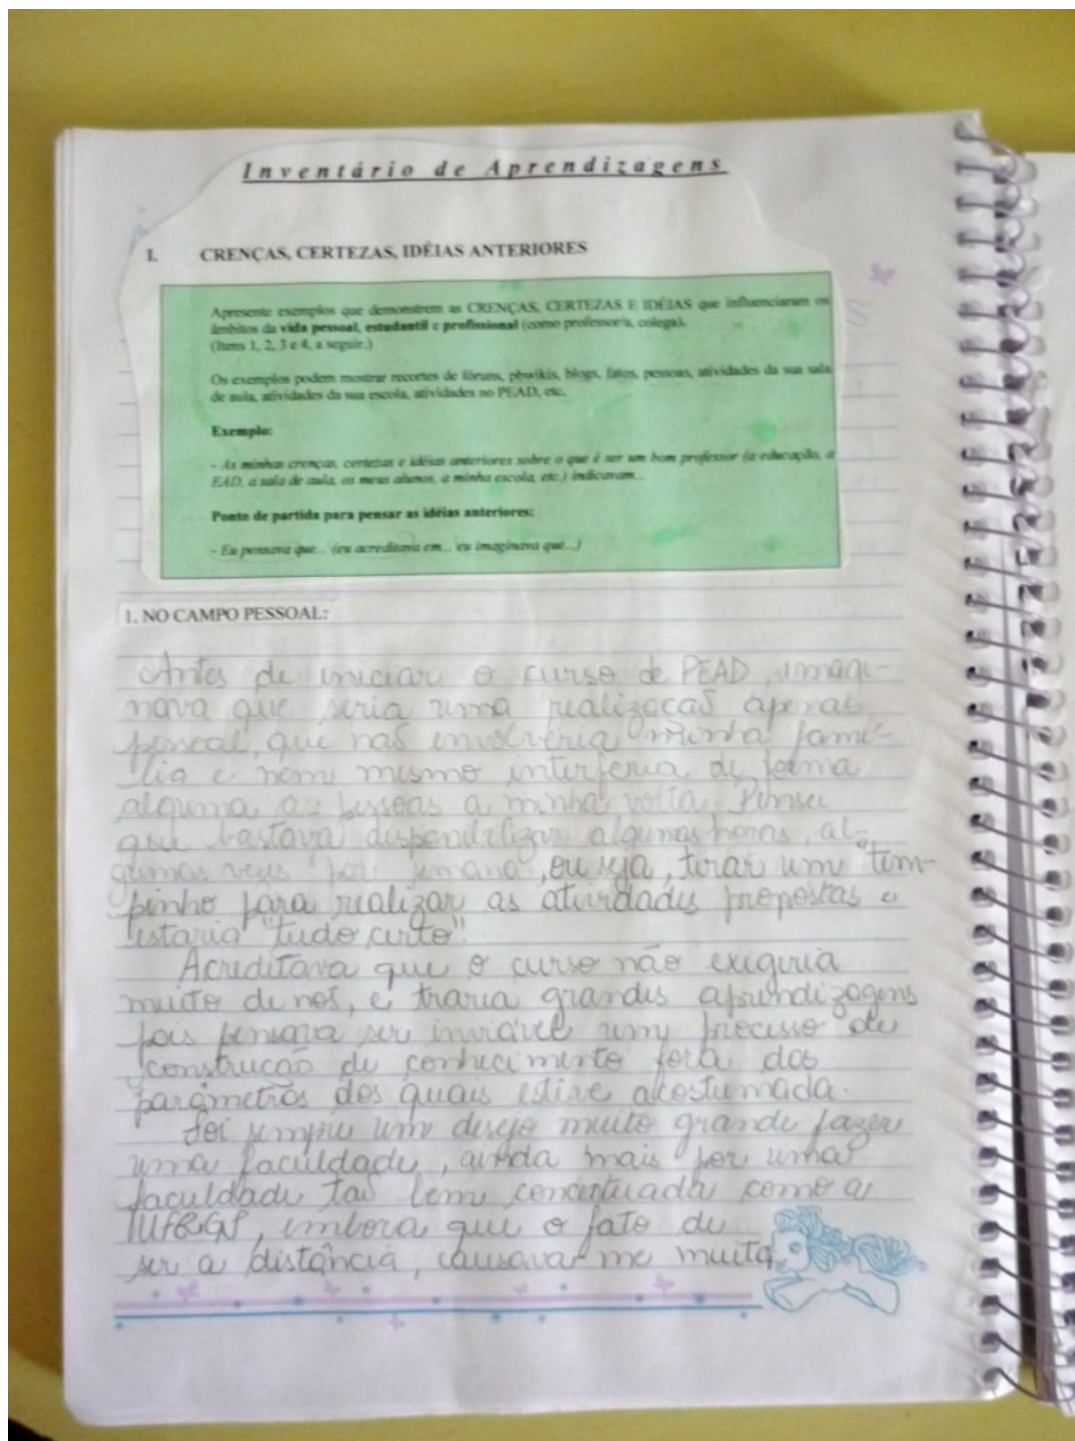 Inventário de Aprendizagens
I. CRENÇAS, CERTEZAS, IDÉIAS ANTERIORES
Apresente exemplos que demonstrem as CRENÇAS, CERTEZAS E IDÉIAS que influenciaram os
âmbitos da vida pessoal, estudantil e profissional (como professor/a, colega).
(Itens 1, 2, 3 e 4, a seguir.)
Os exemplos podem mostrar recortes de fóruns, pbwikis, blogs, fatos, pessoas, atividades da sua sala
de aula, atividades da sua escola, atividades no PEAD, etc.
Exemplo:
- As minhas crenças, certezas e idéias anteriores sobre o que é ser um bom professor (a educação, a
EAD, a sala de aula, os meus alunos, a minha escola, etc.) indicavam...
Ponto de partida para pensar as idéias anteriores:
- Eu pensava que... (eu acreditava em... eu imaginava que...)
1. NO CAMPO PESSOAL:
Antes de iniciar o curso de PEAD, imagi-
nava que seria uma realizacaõ apenas
pessoal, que naõ envolveria minha famí-
lia e nem mesmo interferia de forma
alguma as pessoas a minha volta. Pensei
que bastava disponibilizar algumas horas, al-
gumas vezes por semana, ou seja, tirar um "tem-
pinho para realizar as atividades propostas e
estaria "tudo certo".
Acreditava que o curso não exigiria
muito de nós, e traria grandes aprendizagens
pois pensava ser inviável um processo de
construcão de conhecimento fora dos
parâmetros dos quais estive acostumada.
Foi sempre um desejo muito grande fazer
uma faculdade, ainda mais por uma
faculdade taõ bem conceituada como a
UFRGS, embora que o fato de
ser a distância, causava-me muita